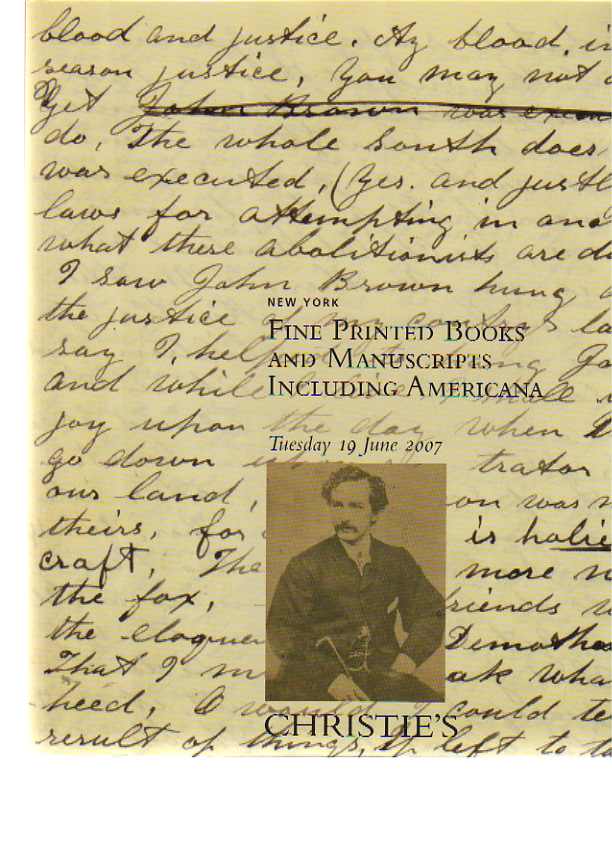 blood and justice. Ay blood, in
reason justice, You may not
Yet John Brown was
do, The whole South does
was executed, (Yes. and justl
laws for attempting in ano
what these abolitionists are do
I saw John Brown hung
NEW YORK
the justice of my country's la
FINE PRINTED BOOKS
say I, help hung Jo
AND MANUSCRIPTS
and while I live, I shall
INCLUDING AMERICANA
joy upon the day when
Tuesday 19 June 2007
go down trator
our land, on was
theirs, for is holie
craft, The more
the fox, friends
the eloquen Demosthe
That I ak wha
heed, O would I could te
CHRISTIE'S
result of things, If left to